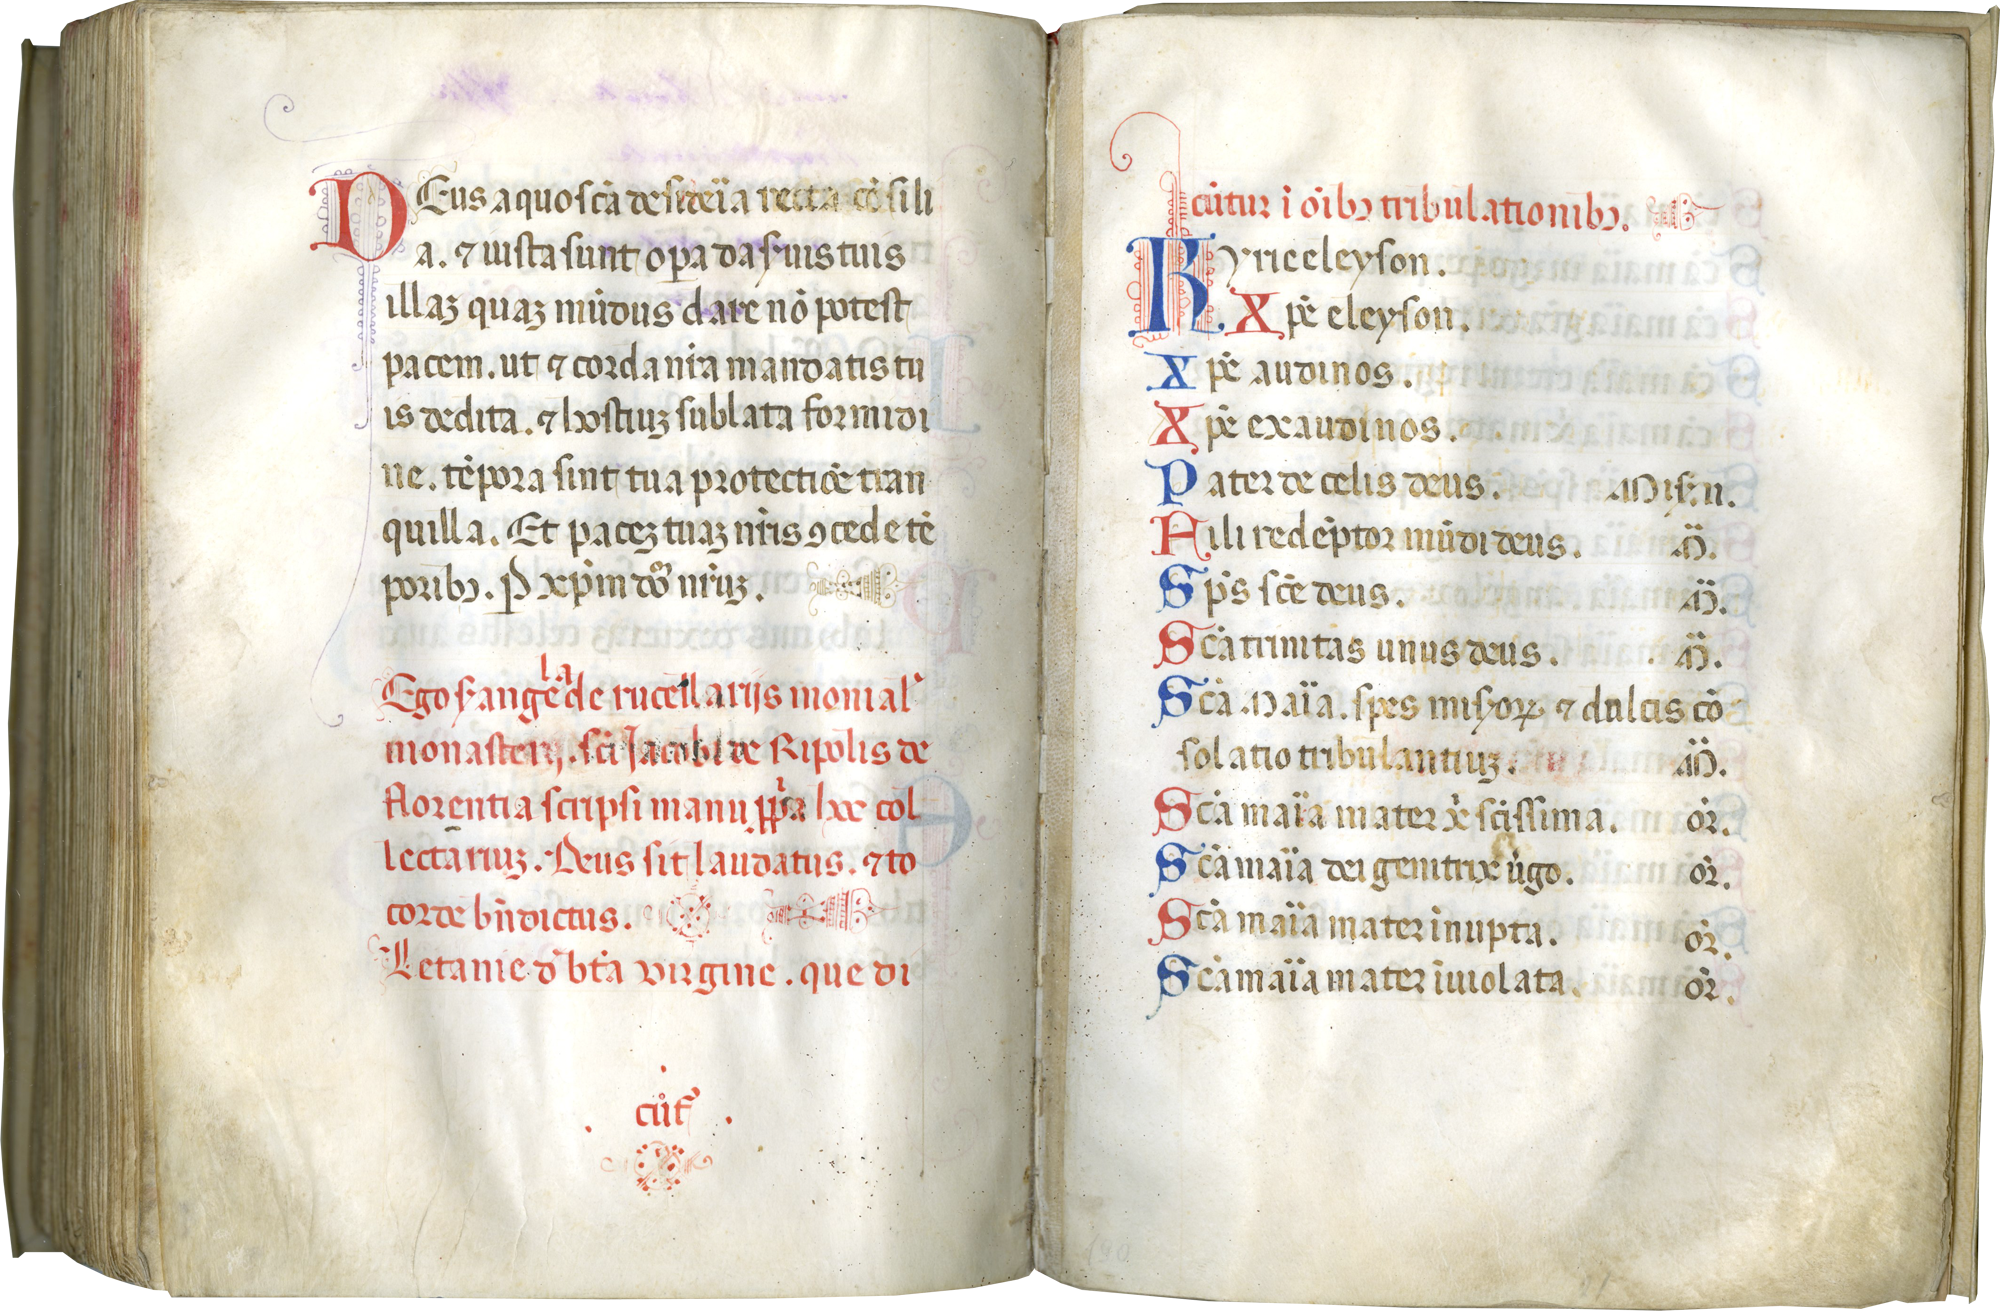 DEus a quo scā desideīa recta cōsili
a. ⁊ iusta sunt oꝑa da s̾uis tuis
illaꝫ quaꝫ mūdus dare nō potest
pacem. ut ⁊ corda nr̄a mandatis tu
is dedita. ⁊ hostiuꝫ sublata formidi
ne. tēpora sint tua protectiōe tran
quilla. Et paceꝫ tuaꝫ nr̄is ꝯcede tē
poribꝫ. P xp̄m dōm nr̄uꝫ.
Ego s̾ angela de rucellariis monial
monasterij. sci Jacobi de Ripolis de
florentia scripsi manu ꝓp̄a hoc col
lectariuꝫ. Deus sit laudatus. ⁊ to
corde bn̄dictus.
Letanie d' bt̄a virgine. que di
cūt
cūtur ī oībꝫ tribulationibꝫ.
Kyrieeleyson.
Xp̄e eleyson.
Xp̄e audinos.
Xp̄e exaudinos.
Pater de celis deus. Mis̾. n.
Fili redēptor mūdi deus. M̄.
Sp̄s scē deus. M̄.
Scā trinitas unus deus. M̄.
Scā Maīa. spes mis̾oꝝ ⁊ dulcis cō
solatio tribulantiuꝫ. M̄.
Scā maīa mater x̄ scīssima. or̄.
Scā maīa dei genitrix ūgo. or̄.
Scā maīa mater īnupta. or̄.
Scā maīa mater īuiolata. or̄.